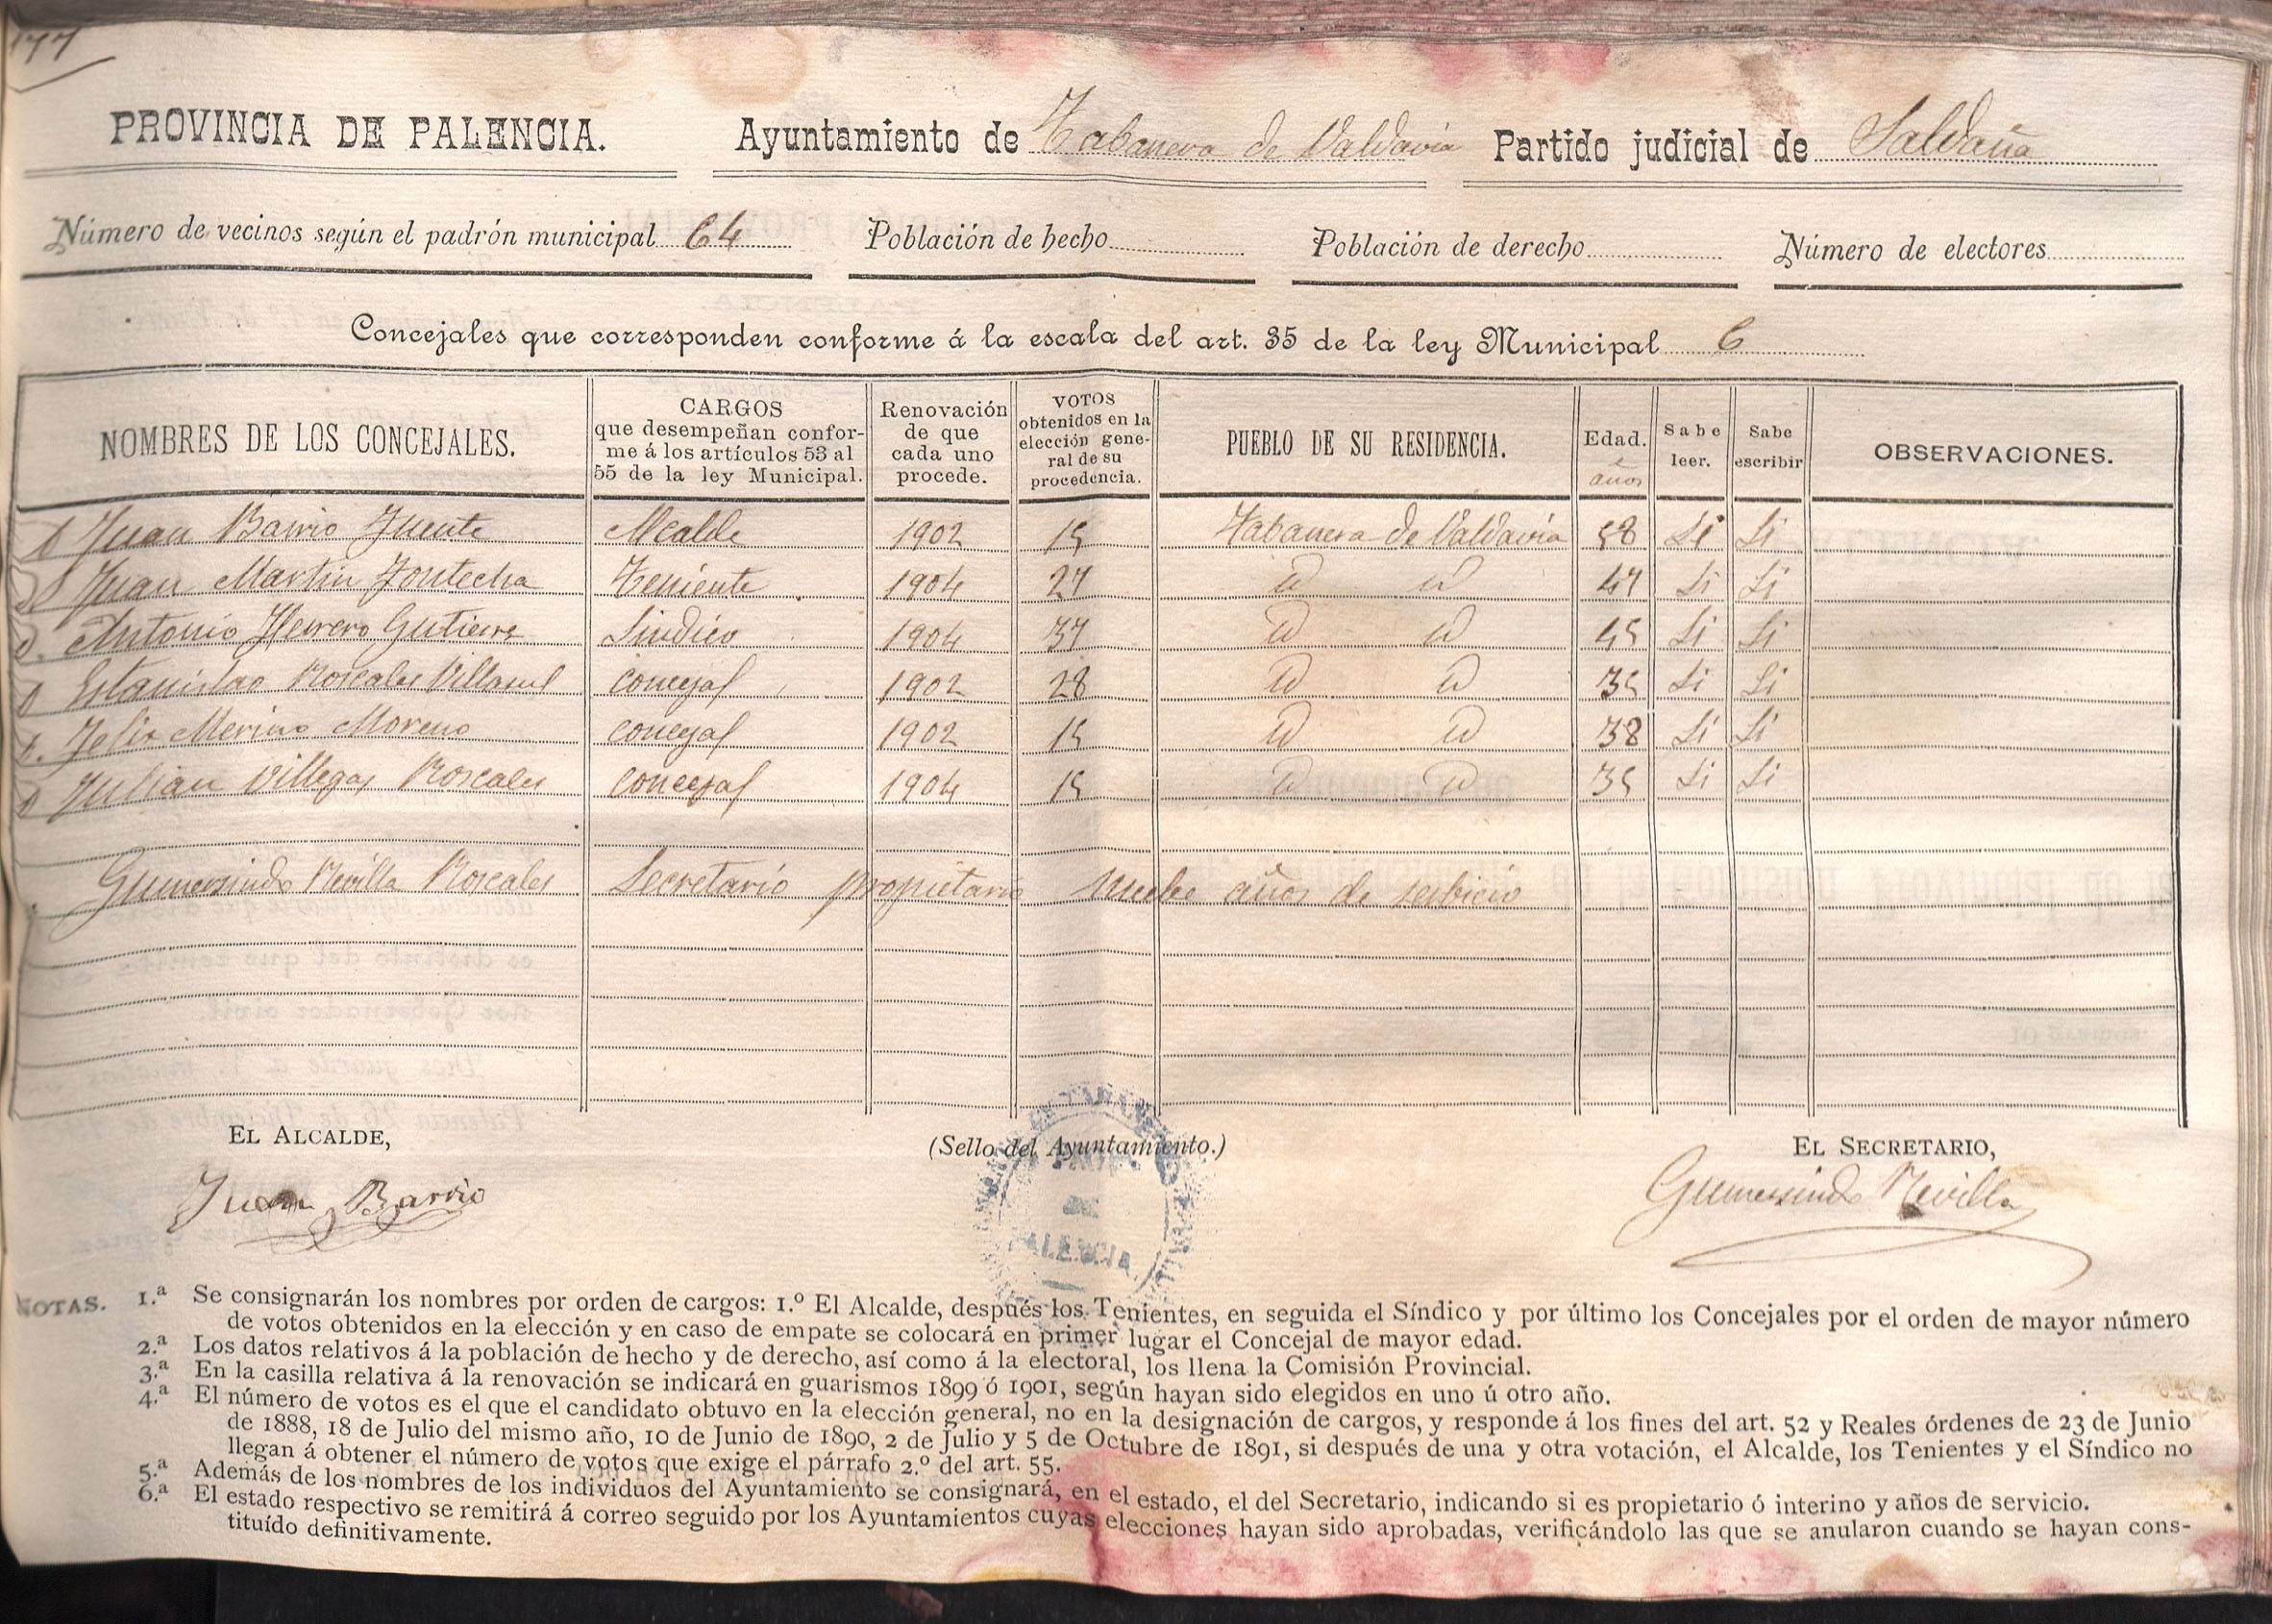 177
PROVINCIA DE PALENCIA. Ayuntamiento de Tabanera de Valdavia Partido judicial de Saldaña
Número de vecinos según el padrón municipal 64 Población de hecho Población de derecho Número de electores
Concejales que corresponden conforme á la escala del art. 35 de la ley Municipal 6
NOMBRES DE LOS CONCEJALES. CARGOS que desempeñan conforme á los artículos 53 al 55 de la ley Municipal. Renovación de que cada uno procede. VOTOS obtenidos en la elección general de su procedencia. PUEBLO DE SU RESIDENCIA. Edad. años Sabe leer. Sabe escribir OBSERVACIONES.
D Juan Barrio Fuente Alcalde 1902 15 Tabanera de Valdavia 58 Si Si
D Juan Martin Fontecha Teniente 1904 27 id id 47 Si Si
D. Antonio Herrero Gutierrez Sindico 1904 37 id id 45 Si Si
D Estanislao Roscales Villasul concejal 1902 28 id id 35 Si Si
D. Felix Merino Moreno concejal 1902 15 id id 38 Si Si
D Julian Villegas Roscales concejal 1904 15 id id 35 Si Si
Gumersindo Revilla Roscales Secretario propietario nuebe años de serbicio
EL ALCALDE, (Sello del Ayuntamiento.) EL SECRETARIO,
Juan Barrio Gumersindo Revilla
DE
PALENCIA
NOTAS. 1.ª Se consignarán los nombres por orden de cargos: 1.º El Alcalde, después los Tenientes, en seguida el Síndico y por último los Concejales por el orden de mayor número
de votos obtenidos en la elección y en caso de empate se colocará en primer lugar el Concejal de mayor edad.
2.ª Los datos relativos á la población de hecho y de derecho, así como á la electoral, los llena la Comisión Provincial.
3.ª En la casilla relativa á la renovación se indicará en guarismos 1899 ó 1901, según hayan sido elegidos en uno ú otro año.
4.ª El número de votos es el que el candidato obtuvo en la elección general, no en la designación de cargos, y responde á los fines del art. 52 y Reales órdenes de 23 de Junio
de 1888, 18 de Julio del mismo año, 10 de Junio de 1890, 2 de Julio y 5 de Octubre de 1891, si después de una y otra votación, el Alcalde, los Tenientes y el Síndico no
llegan á obtener el número de votos que exige el párrafo 2.º del art. 55.
5.ª Además de los nombres de los individuos del Ayuntamiento se consignará, en el estado, el del Secretario, indicando si es propietario ó interino y años de servicio.
6.ª El estado respectivo se remitirá á correo seguido por los Ayuntamientos cuyas elecciones hayan sido aprobadas, verificándolo las que se anularon cuando se hayan cons-
tituído definitivamente.